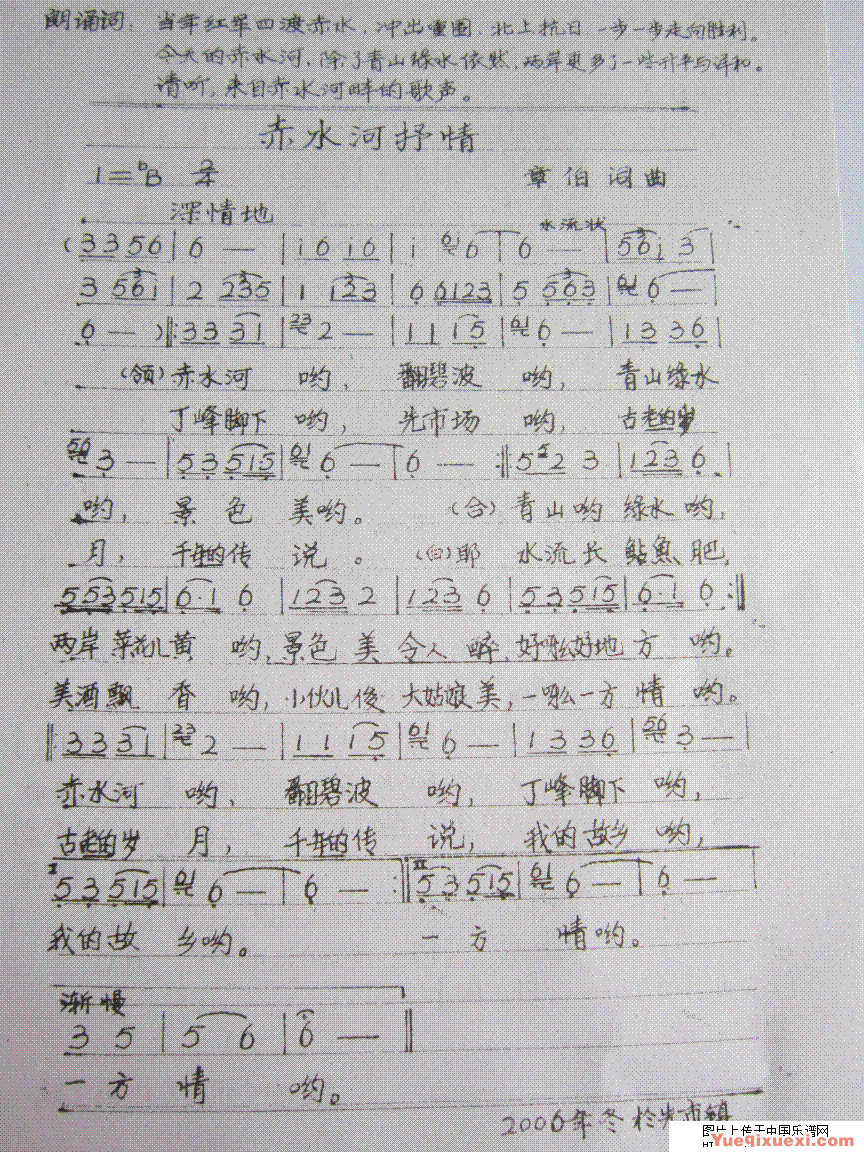 朗诵词：当年红军四渡赤水，冲出重围，北上抗日 一步一步走向胜利。
今天的赤水河，除了青山绿水依然，两岸更多了一些升平与详和。
请听，来自赤水河畔的歌声。
赤水河抒情
1=♭B 2/4 章伯 词曲
深情地
水流状
(3356|6 —|i6 i6|i 6i6|6 —|56i 3|
3 56i|2 235|1 123|6 6123|5 563|6i6 —|
6 — )‖:33 31|23 2 —|11 15|61 6 —|13 36|
(领)赤水河 哟， 翻碧波 哟， 青山绿水
丁峰脚下 哟， 先市场 哟， 古老的岁
56 3 —|53 515|61 6 —|6 — :‖5 5 2 3|123 6|
哟， 景色 美哟。 (合)青山哟 绿水哟，
月， 千年的传 说。 (合)耶 水流长 鲇鱼肥，
553 515|6·1 6|123 2|123 6|53 515|6·1 6:‖
两岸菜花儿黄 哟，景色美 令人醉，好呀么好地方 哟。
美酒飘香 哟，小伙儿俊 大姑娘美，一呀么一方情 哟。
‖:33 31|23 2 —|11 15|61 6 —|13 36|56 3 —|
赤水河 哟， 翻碧波 哟， 丁峰脚下 哟，
古老的岁 月， 千年的传 说， 我的故乡 哟，
I II
53 515|61 6 —|6 — :‖53 515|61 6 —|6 —|
我的故 乡哟。 一方 情哟。
渐慢
3 5|5 6|6 —‖
一方 情 哟。
2006年冬于先市镇
图片上传于中国乐谱网
Yueqixuexi.com